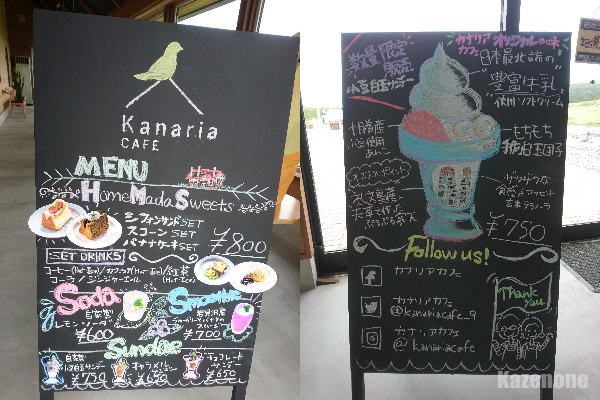 Kanaria
CAFE
MENU
HomeMada Sweets
シフォンサンドSET
スコーン SET
バナナケーキSET
¥800
SET DRINKS
コーヒー(Hot・Ice)/カフェオレ(Hot・Ice)/紅茶(Hot・Ice)
コーラ/ジンジャーエール
Soda
自家製
レモンソーダ
¥600
Smoothie
¥700
Sundae
自家製
小豆白玉サンデー
¥750
キャラメル
サンデー
¥650
チョコレート
サンデー
¥650
数量限定
販売
小豆白玉サンデー
カナリア オリジナルの味
カフェ
日本最北端の
"豊富牛乳"
使用 ソフトクリーム
十勝産
小豆使用
あんこ
もちもち
白玉団子
天草で作る
ぷるぷる寒天
ザクザクの
玄米グラノーラ
¥750
Follow us!
カナリアカフェ
カナリアカフェ
@kanariacafe_9
カナリアカフェ
@kanariacafe
Thank
you
Kazenone